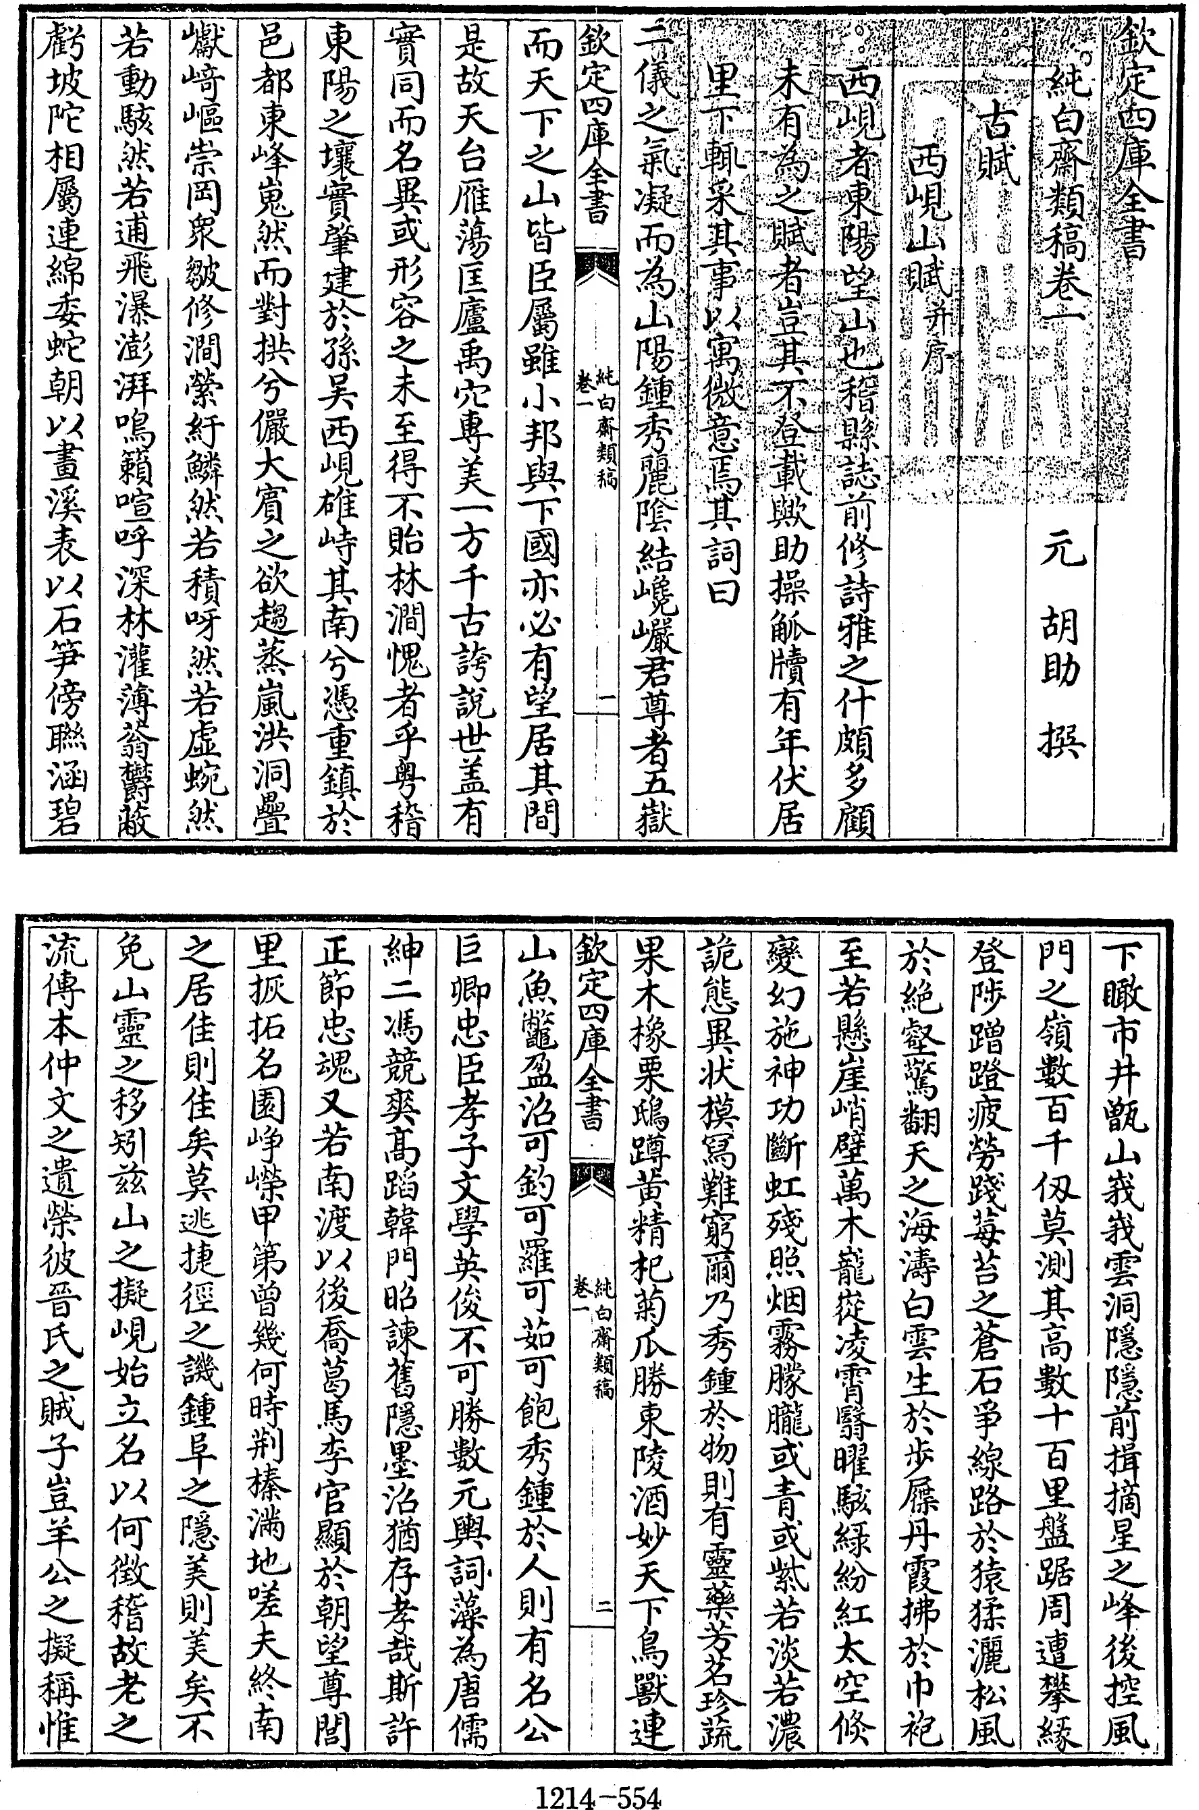 欽定四庫全書
純白齋類稿卷一
元 胡助 撰
古賦
西峴山賦并序
西峴者東陽望山也稽縣誌前修詩雅之什頗多顧
未有為之賦者豈其不登載歟助操觚牘有年伏居
里下輒采其事以寓微意焉其詞曰
二儀之氣凝而為山陽鍾秀麗陰結巉巖君尊者五嶽
欽定四庫全書
純白齋類稿
卷一
一
而天下之山皆臣屬雖小邦與下國亦必有望居其間
是故天台雁蕩匡廬禹穴專美一方千古誇說世蓋有
實同而名異或形容之未至得不貽林澗愧者乎粵稽
東陽之壤實肇建於孫吳西峴雄峙其南兮憑重鎮於
邑都東峰嵬然而對拱兮儼大賓之欲趨蒸嵐洪洞疊
巘崎嶇崇岡衆皺修澗縈紆鱗然若積呀然若虛蜿然
若動駭然若逋飛瀑澎湃鳴籟喧呼深林灌薄蓊鬱蔽
虧坡陀相屬連綿委蛇朝以畫溪表以石笋傍聯涵碧
下瞰市井甑山峩峩雲洞隱隱前揖摘星之峰後控風
門之嶺數百千仭莫測其高數十百里盤踞周遭攀緣
登陟蹭蹬疲勞踐莓苔之蒼石爭線路於猿猱灑松風
於絶壑驚翻天之海濤白雲生於步屧丹霞拂於巾袍
至若懸崖峭壁萬木巃嵸凌霄翳曜駭緑紛紅太空倐
變幻施神功斷虹殘照烟霧朦朧或青或紫若淡若濃
詭態異狀模寫難窮爾乃秀鍾於物則有靈藥芳茗珍蔬
果木橡栗鴟蹲黄精杞菊瓜勝東陵酒妙天下鳥獸連
欽定四庫全書
純白齋類稿
卷一
二
山魚鼈盈沼可釣可羅可茹可飽秀鍾於人則有名公
巨卿忠臣孝子文學英俊不可勝數元輿詞藻為唐儒
紳二馮競爽高蹈韓門昭諫舊隱墨沼猶存孝哉斯許
正節忠魂又若南渡以後喬葛馬李官顯於朝望尊閭
里恢拓名園崢嶸甲第曾幾何時荆榛滿地嗟夫終南
之居佳則佳矣莫逃捷徑之譏鍾阜之隱美則美矣不
免山靈之移矧兹山之擬峴始立名以何徴稽故老之
流傳本仲文之遺榮彼晉氏之賊子豈羊公之擬稱惟
1214-554